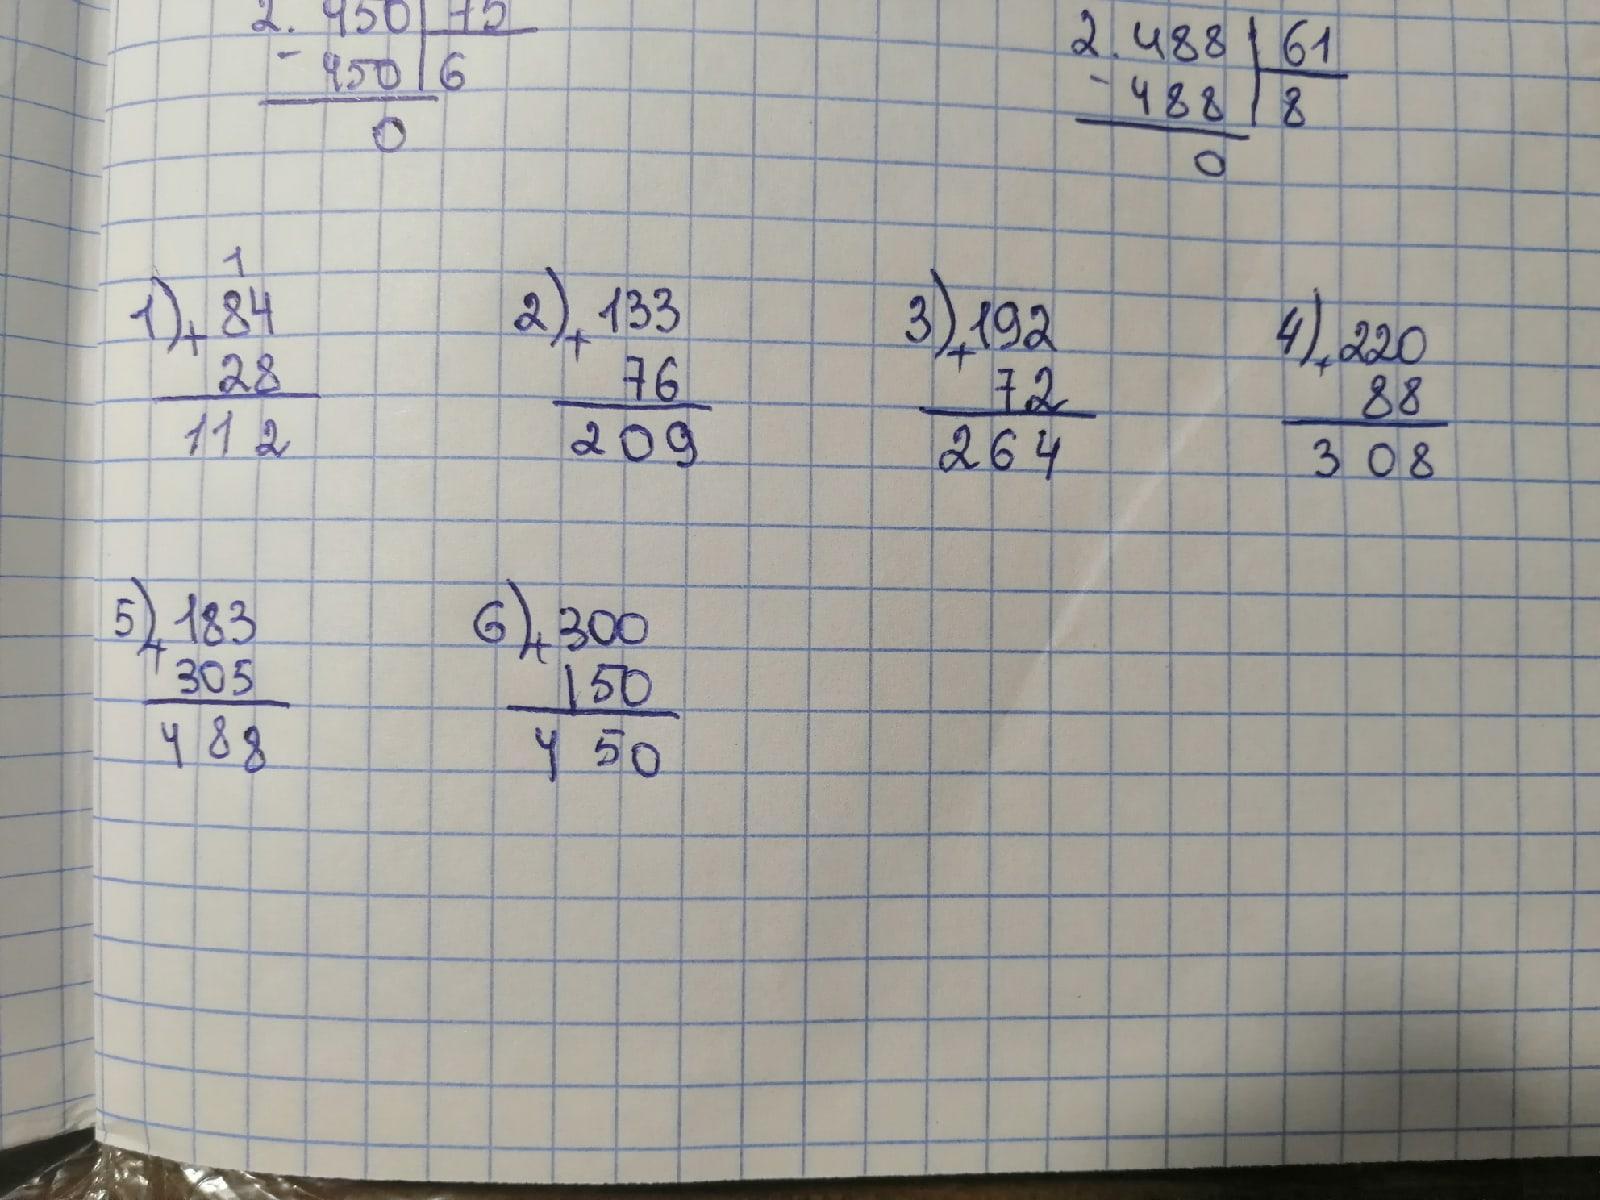 2. 450 | 75
- 450 | 6
0
2. 488 | 61
- 488 | 8
0
1
1) + 84
28
112
2) + 133
76
209
3) + 192
72
264
4) + 220
88
308
5) + 183
305
488
6) + 300
150
450